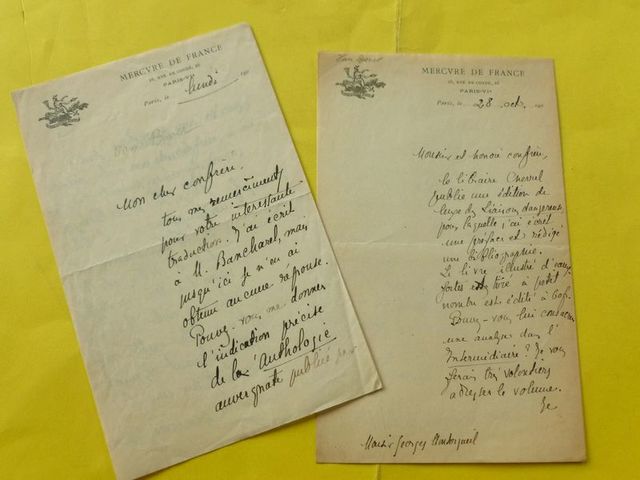 MERCVRE DE FRANCE
26, RVE DE CONDÉ, 26
PARIS-VIᵉ
Paris, le lundi 190
Mon cher confrère,
tous mes remerciements
pour votre intéressante
traduction. J'ai écrit
à M. Bancharel, mais
jusqu'ici je n'en ai
obtenu aucune réponse.
Pouvez-vous me donner
l'indication précise
de la Anthologie
auvergnate publiée
MERCVRE DE FRANCE
26, RVE DE CONDÉ, 26
PARIS-VIᵉ
Paris, le 28 oct. 190
Monsieur et honoré confrère,
le libraire
publie une édition de
luxe des Liaisons dangereuses,
pour laquelle j'ai écrit
une préface et rédigé
une bibliographie.
Le livre illustré d'eaux
fortes et tiré à petit
nombre est édité à
Pouvez-vous lui consacrer
une analyse dans l'
Intermédiaire ? Je vous
ferais très volontiers
adresser le volume.
Je
Monsieur Georges Montorgueil